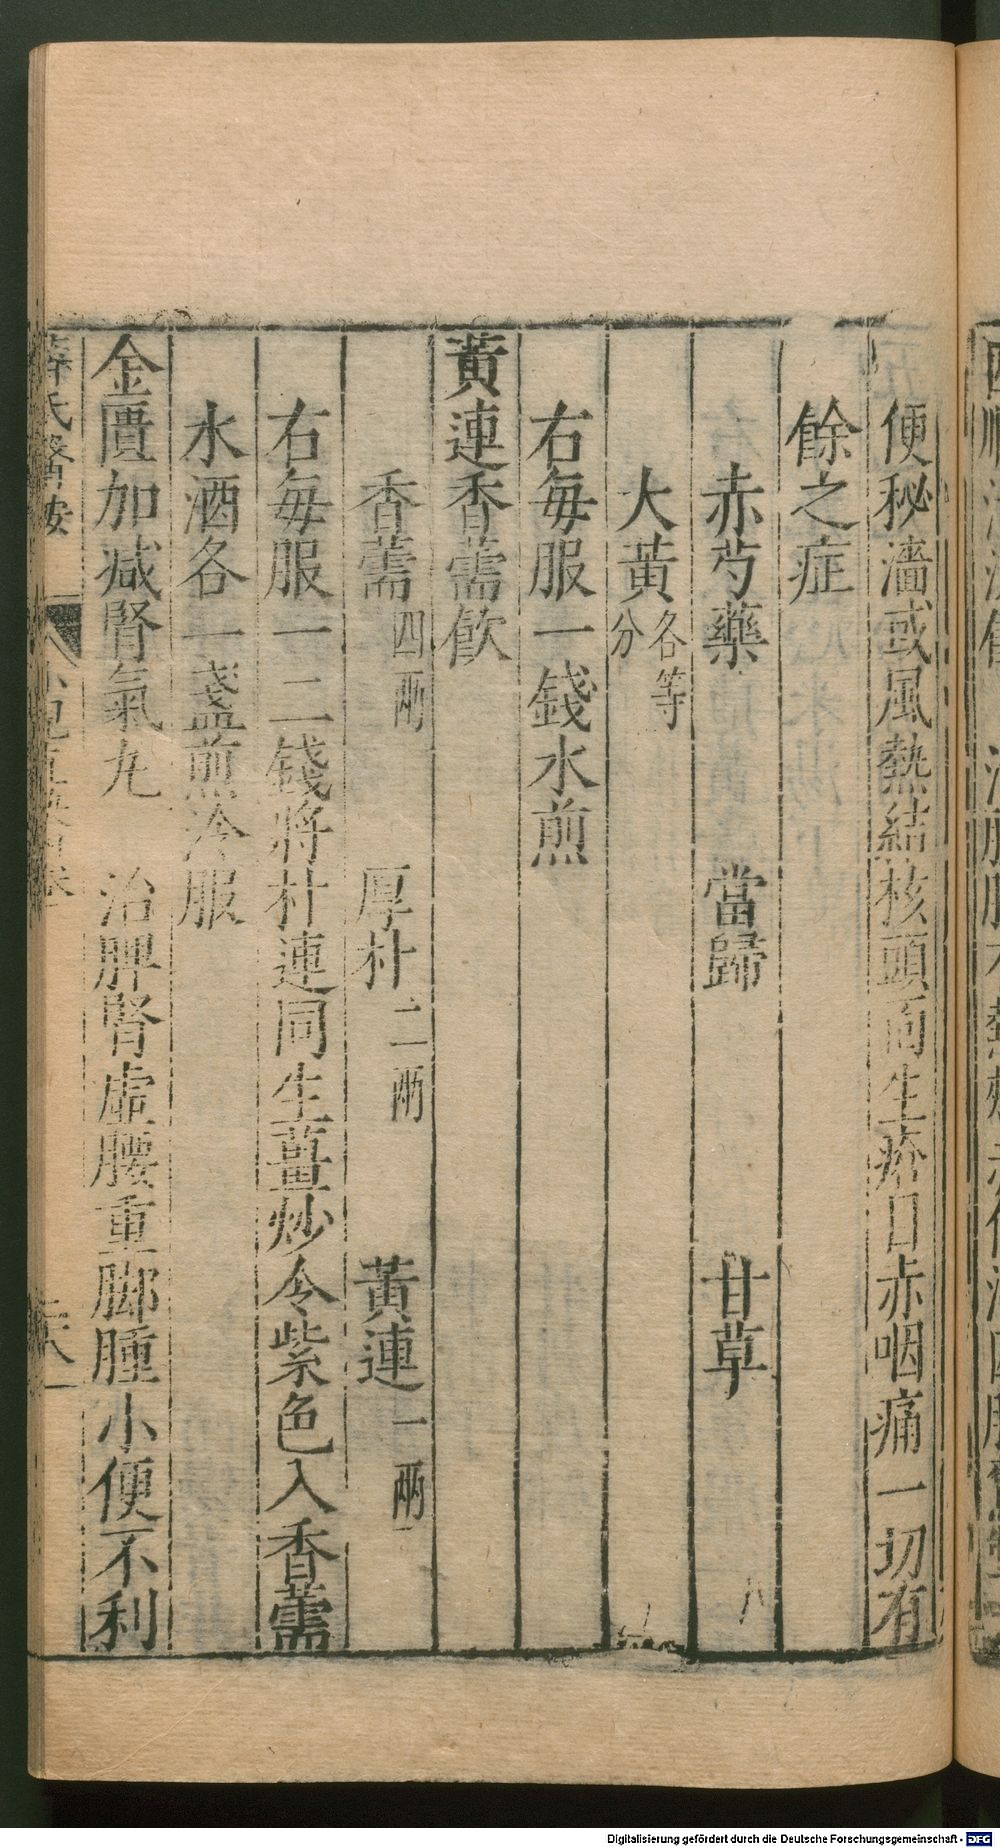 便秘濇或風熱結核頭面生瘡目赤咽痛一切有
餘之症
赤芍藥 當歸 甘草
大黃各等分
右每服一錢水煎
黃連香薷飲
香薷四兩 厚朴二兩 黃連一兩
右每服一二錢將朴連同生薑炒令紫色入香薷
水酒各一盞煎冷服
金匱加减腎氣丸 治脾腎虛腰重脚腫小便不利
氏醫按
Digitalisierung gefördert durch die Deutsche Forschungsgemeinschaft - DFG